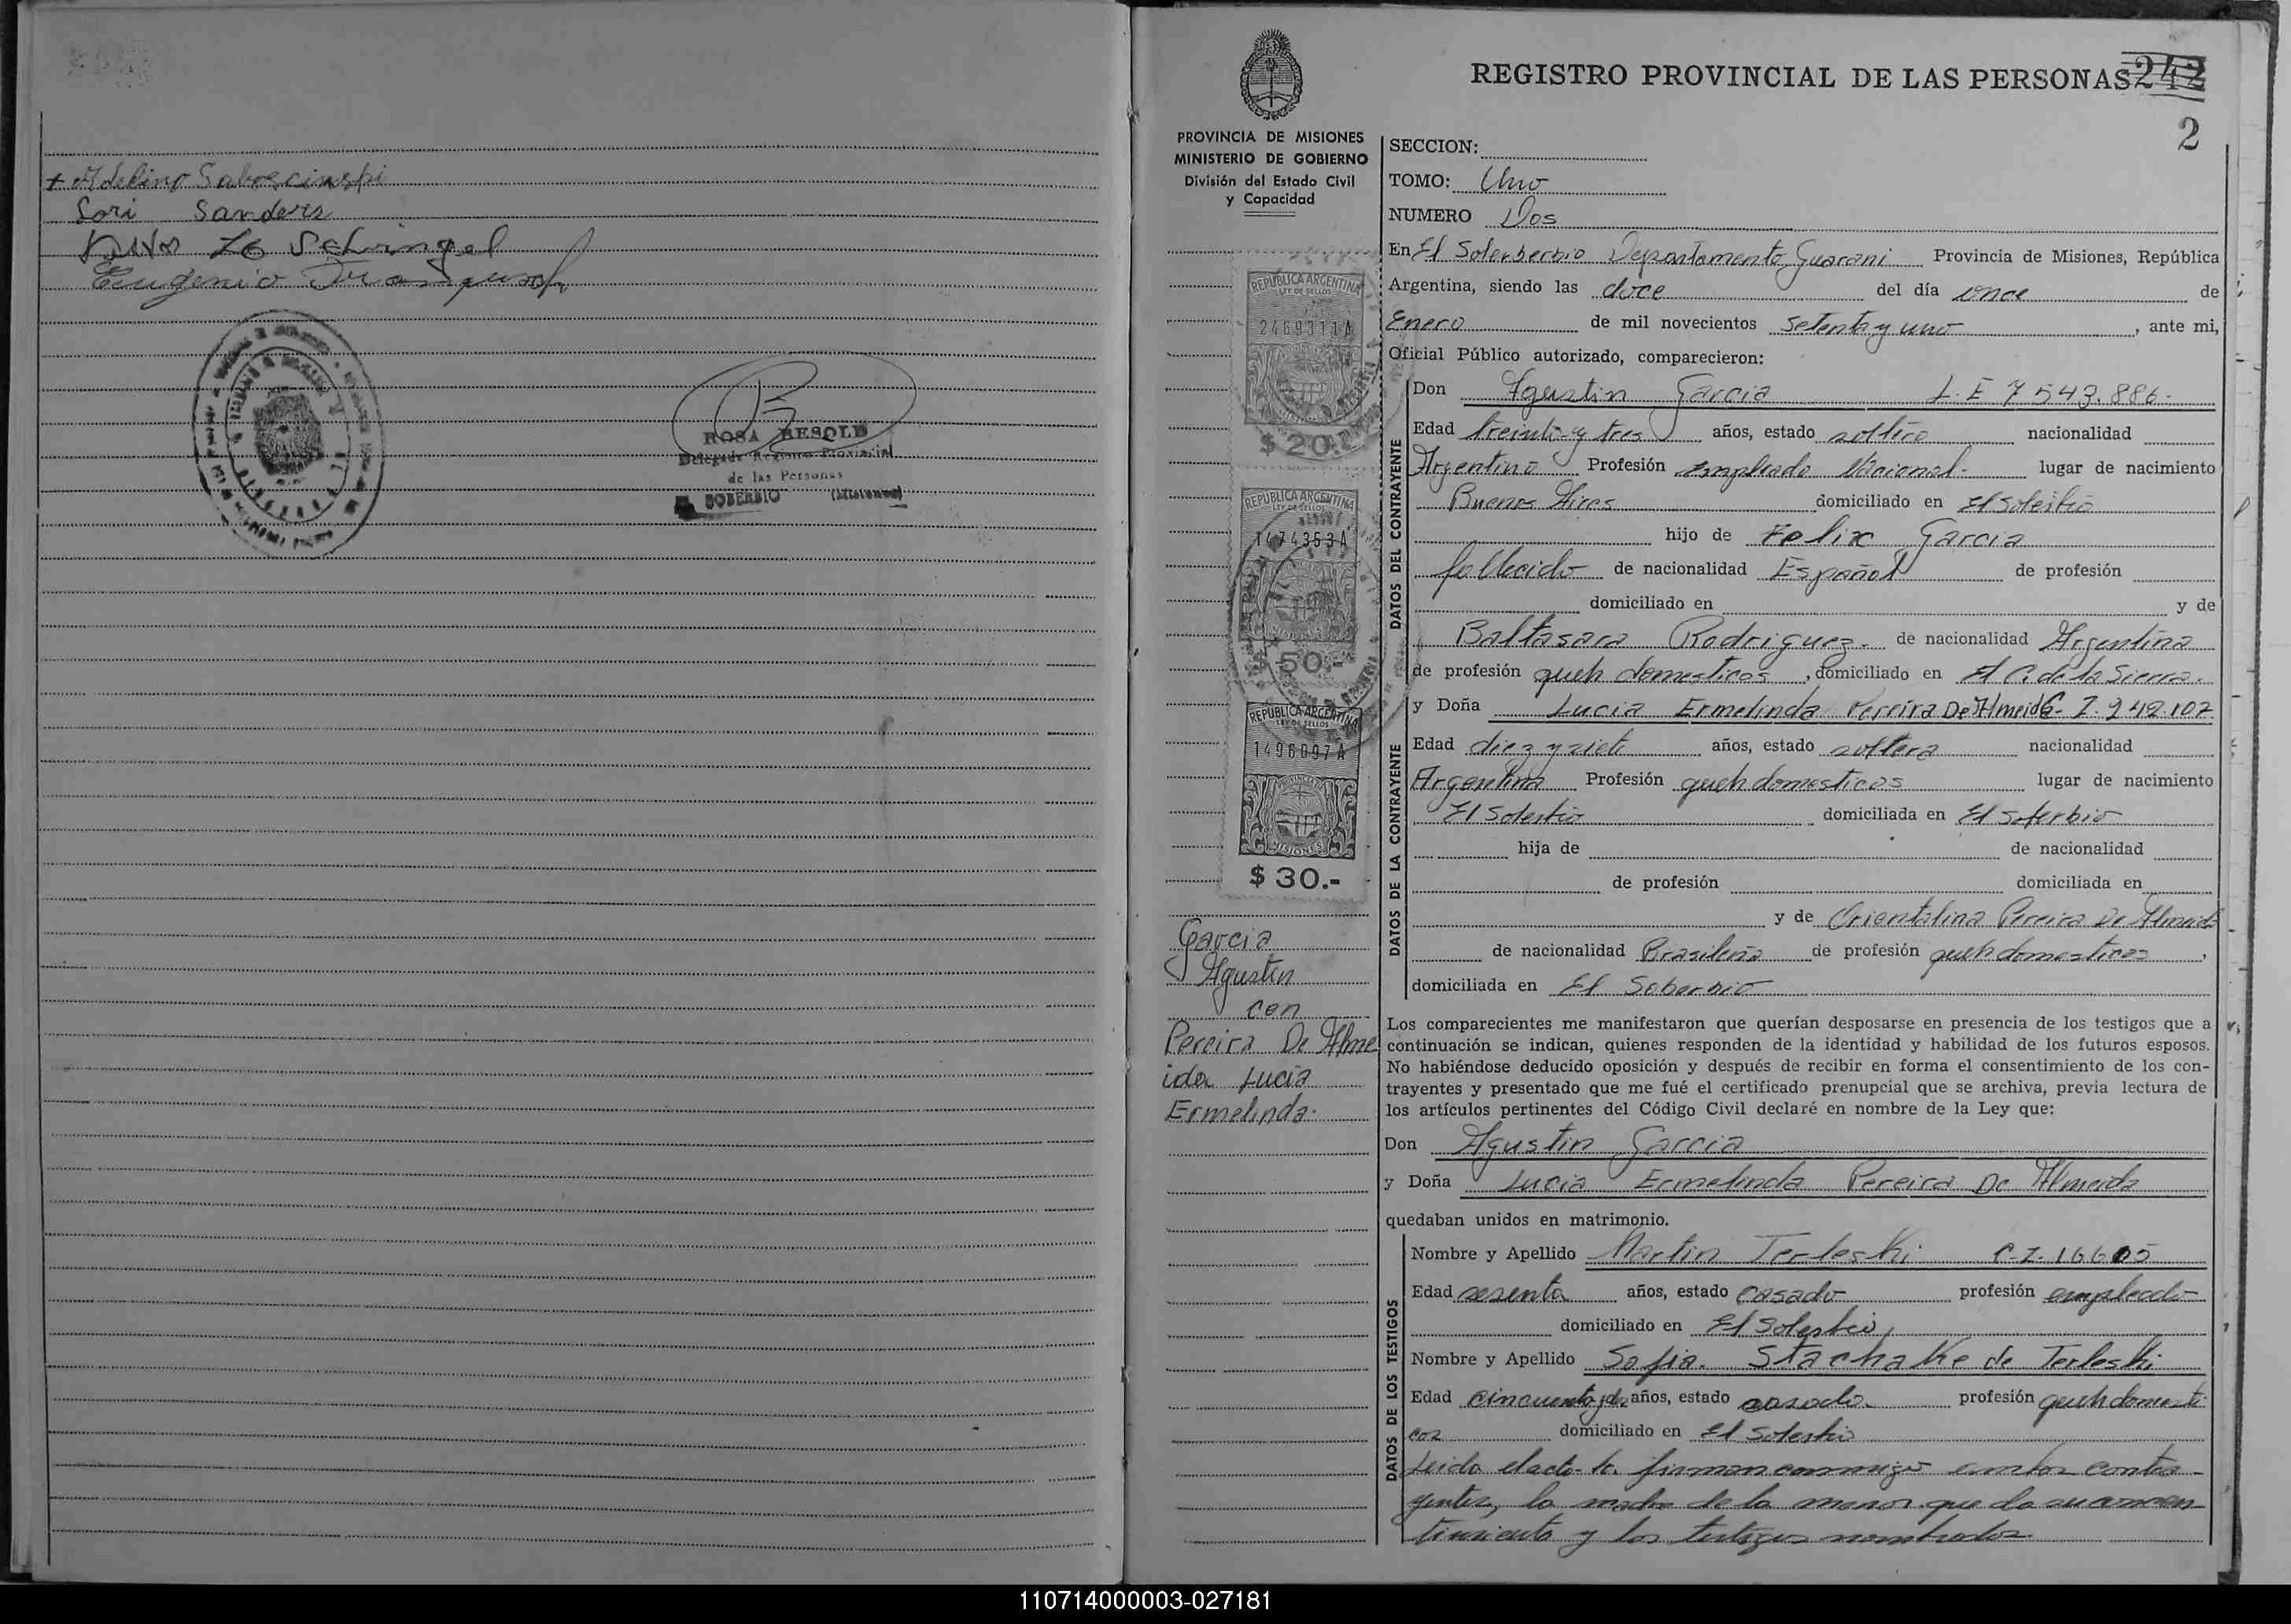 Sanders
Eugenio
ROSA RESOLD
Delegada Registro Provincial
de las Personas
SOBERBIO (Misiones)
REGISTRO PROVINCIAL DE LAS PERSONAS 242
2
PROVINCIA DE MISIONES
MINISTERIO DE GOBIERNO
División del Estado Civil
y Capacidad
REPUBLICA ARGENTINA
LEY DE SELLOS
2469311A
$ 20.-
REPUBLICA ARGENTINA
LEY DE SELLOS
1474363A
$ 50.-
REPUBLICA ARGENTINA
LEY DE SELLOS
1496097A
MISIONES
$ 30.-
Garcia
Agustin
con
Pereira De Alme
ida Lucia
Ermelinda.
SECCION:
TOMO: Uno
NUMERO Dos
En El Soberbio Departamento Guarani Provincia de Misiones, República
Argentina, siendo las doce del día once de
Enero de mil novecientos Setenta y uno, ante mi,
Oficial Público autorizado, comparecieron:
DATOS DEL CONTRAYENTE
Don Agustin Garcia L.E 7543.886.
Edad treinta y tres años, estado soltero nacionalidad
Argentino Profesión empleado Nacional. lugar de nacimiento
Buenos Aires domiciliado en El Soberbio
hijo de Felix Garcia
fallecido de nacionalidad Español de profesión
domiciliado en y de
Baltasara Rodriguez. de nacionalidad Argentina
de profesión queh domesticos, domiciliado en El C. de la Sierra.
DATOS DE LA CONTRAYENTE
y Doña Lucia Ermelinda Pereira De Almeida C. I. 242.102
Edad diez y siete años, estado soltera nacionalidad
Argentina Profesión queh domesticos lugar de nacimiento
El Soberbio domiciliada en El Soberbio
hija de de nacionalidad
de profesión domiciliada en
y de Orientalina Pereira De Almeida
de nacionalidad Brasileña de profesión queh domesticos,
domiciliada en El Soberbio
Los comparecientes me manifestaron que querían desposarse en presencia de los testigos que a
continuación se indican, quienes responden de la identidad y habilidad de los futuros esposos.
No habiéndose deducido oposición y después de recibir en forma el consentimiento de los con-
trayentes y presentado que me fué el certificado prenupcial que se archiva, previa lectura de
los artículos pertinentes del Código Civil declaré en nombre de la Ley que:
Don Agustin Garcia
y Doña Lucia Ermelinda Pereira De Almeida
quedaban unidos en matrimonio.
DATOS DE LOS TESTIGOS
Nombre y Apellido Martin Terleski C.I. 16605
Edad sesenta años, estado casado profesión empleado
domiciliado en El Soberbio,
Nombre y Apellido Sofia Stachake de Terleski
Edad cincuenta y dos años, estado casada profesión queh domesti
cos domiciliado en El Soberbio
Leida el acta la firman conmigo ambos contra-
yentes, la madre de la menor que da su consen
timiento y los testigos nombrados
110714000003-027181